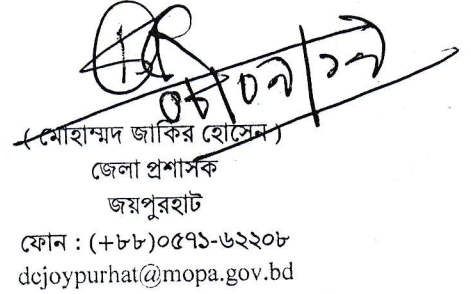 ০৮/০৯/১৯
( মোহাম্মদ জাকির হোসেন )
জেলা প্রশাসক
জয়পুরহাট
ফোন : (+৮৮)০৫৭১-৬২২০৮
dcjoypurhat@mopa.gov.bd